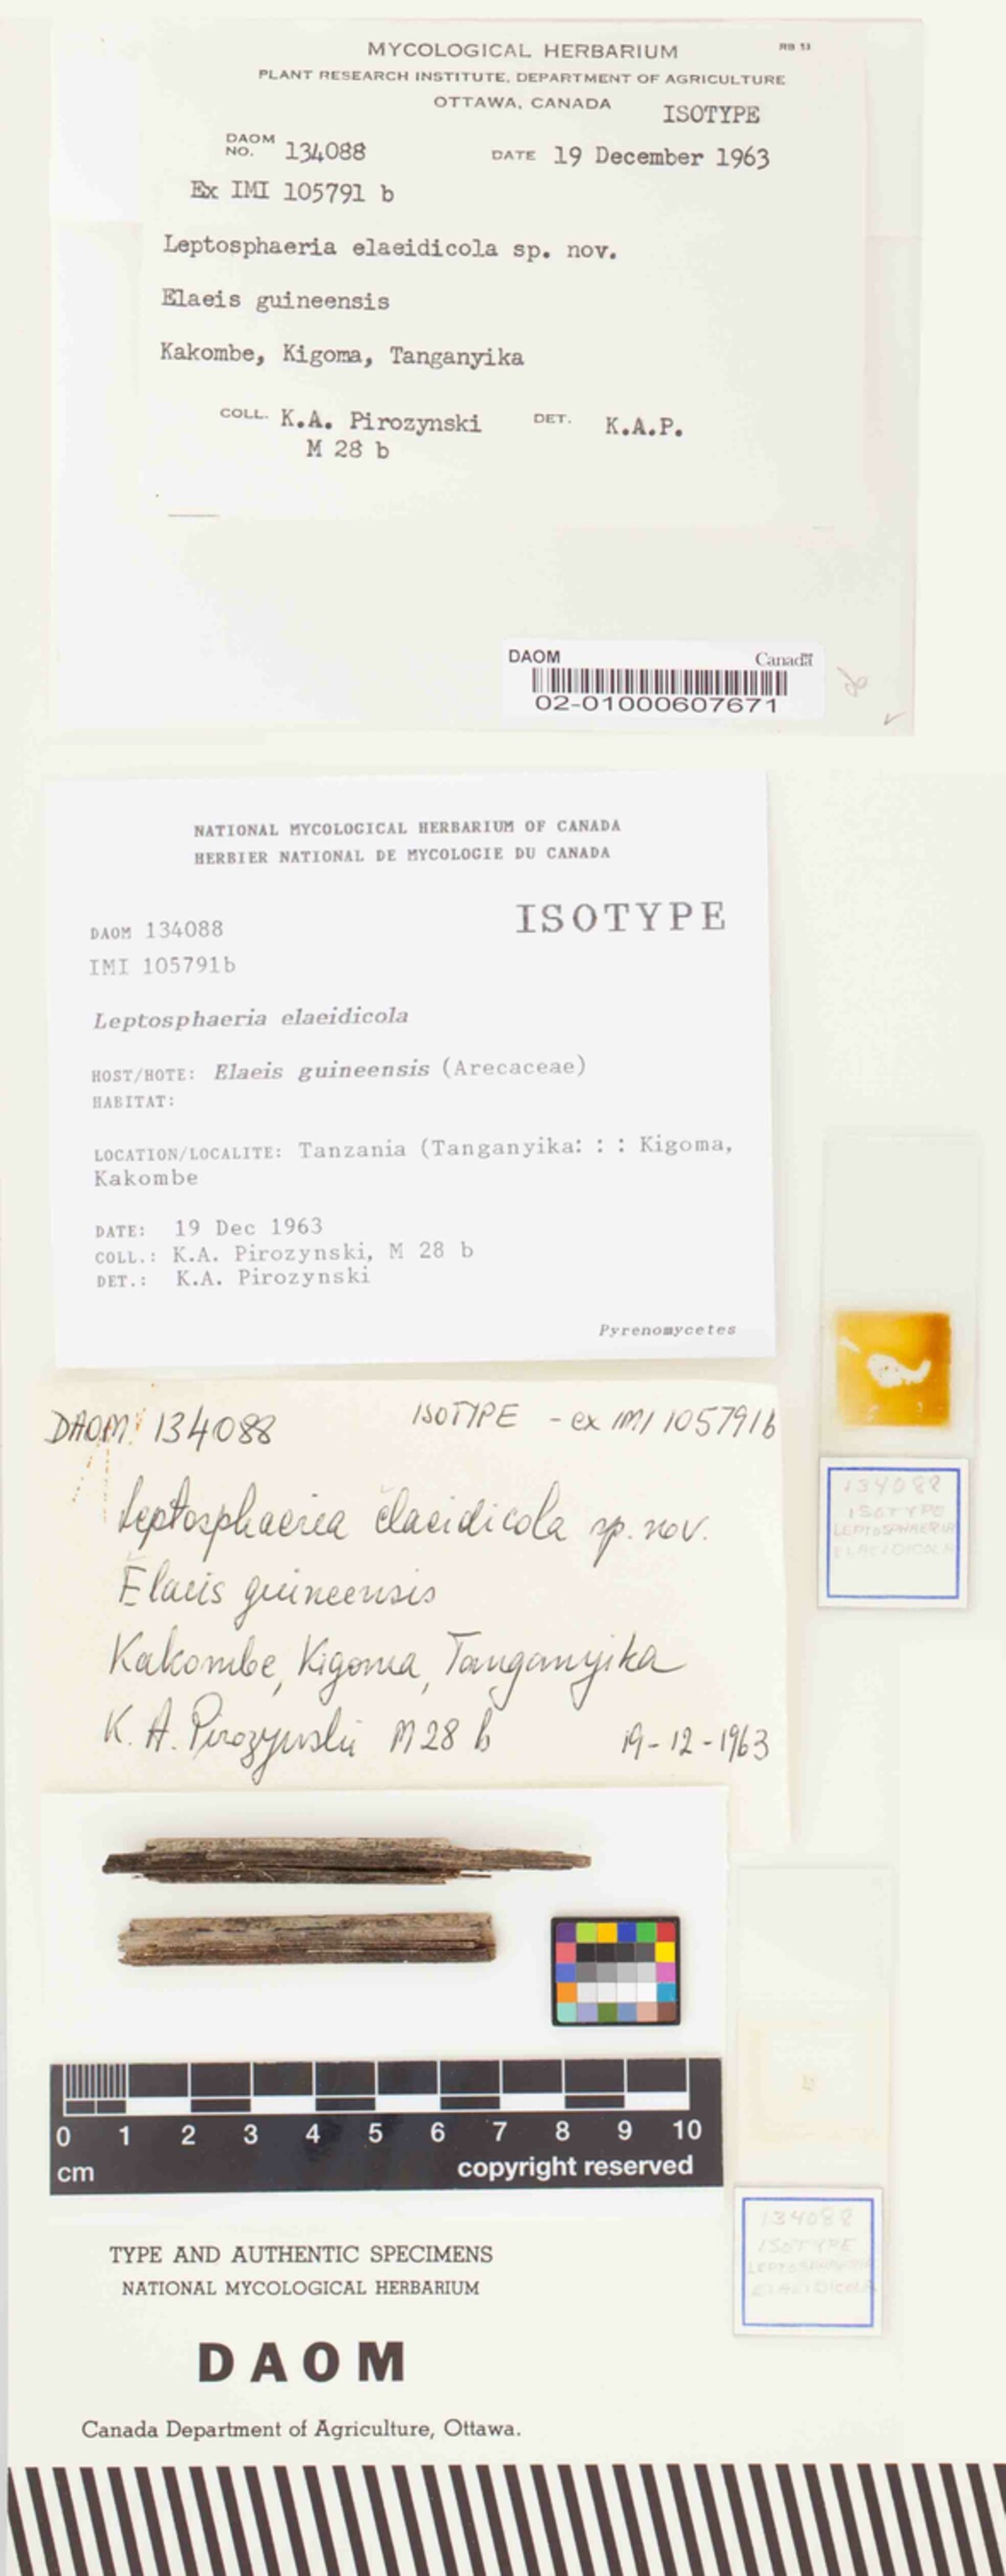 MYCOLOGICAL HERBARIUM
RB 13
PLANT RESEARCH INSTITUTE, DEPARTMENT OF AGRICULTURE
OTTAWA, CANADA
ISOTYPE
DAOM NO. 134088
DATE 19 December 1963
Ex IMI 105791 b
Leptosphaeria elaeidicola sp. nov.
Elaeis guineensis
Kakombe, Kigoma, Tanganyika
COLL. K.A. Pirozynski DET. K.A.P.
M 28 b
DAOM Canada
02-01000607671
NATIONAL MYCOLOGICAL HERBARIUM OF CANADA
HERBIER NATIONAL DE MYCOLOGIE DU CANADA
ISOTYPE
DAOM 134088
IMI 105791b
Leptosphaeria elaeidicola
HOST/HOTE: Elaeis guineensis (Arecaceae)
HABITAT:
LOCATION/LOCALITE: Tanzania (Tanganyika: : : Kigoma,
Kakombe
DATE: 19 Dec 1963
COLL.: K.A. Pirozynski, M 28 b
DET.: K.A. Pirozynski
Pyrenomycetes
DAOM: 134088 ISOTYPE - ex IMI 105791b
Leptosphaeria elaeidicola sp. nov.
Elaeis guineensis
Kakombe, Kigoma, Tanganyika
K. A. Pirozynski M 28 b 19-12-1963
134088
ISOTYPE
LEPTOSPHAERIA
ELAEIDICOLA
0 1 2 3 4 5 6 7 8 9 10
cm copyright reserved
134088
ISOTYPE
LEPTOSPHAERIA
ELAEIDICOLA
TYPE AND AUTHENTIC SPECIMENS
NATIONAL MYCOLOGICAL HERBARIUM
DAOM
Canada Department of Agriculture, Ottawa.